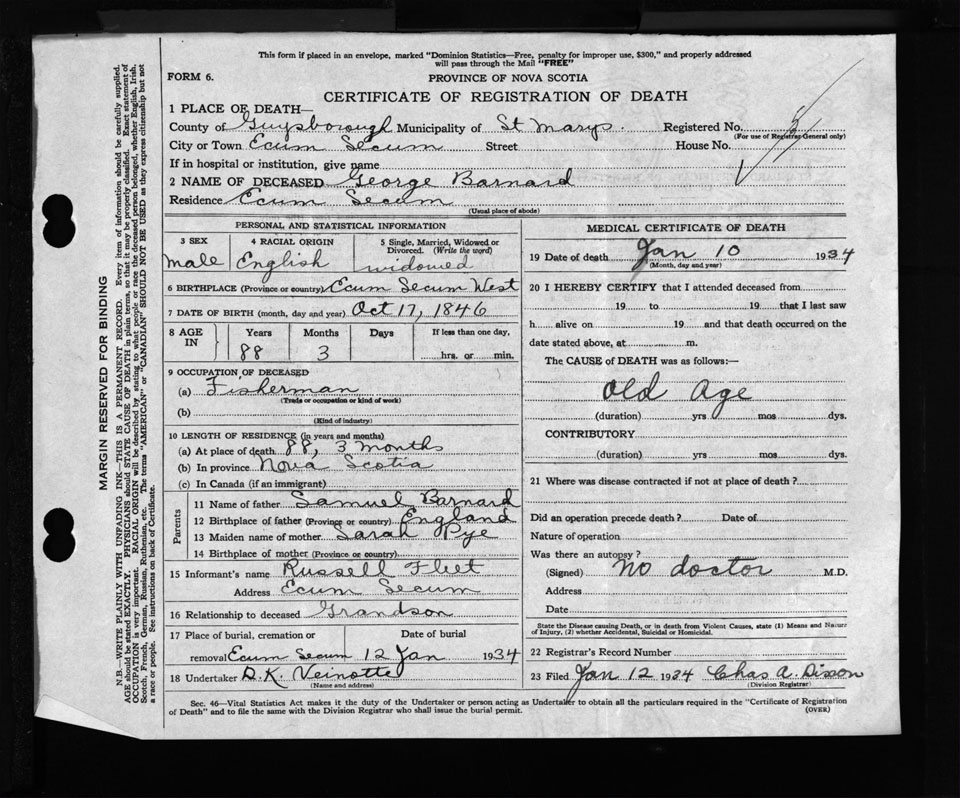 This form if placed in an envelope, marked "Dominion Statistics—Free, penalty for improper use, $300," and properly addressed
will pass through the Mail "FREE"
FORM 6.
PROVINCE OF NOVA SCOTIA
CERTIFICATE OF REGISTRATION OF DEATH
1 PLACE OF DEATH—
County of Guysborough Municipality of St Marys. Registered No.
(For use of Registrar General only)
City or Town Ecum Secum Street House No.
If in hospital or institution, give name
2 NAME OF DECEASED George Barnard
Residence Ecum Secum
(Usual place of abode)
PERSONAL AND STATISTICAL INFORMATION
3 SEX
male
4 RACIAL ORIGIN
English
5 Single, Married, Widowed or
Divorced. (Write the word)
widowed
6 BIRTHPLACE (Province or country) Ecum Secum West
7 DATE OF BIRTH (month, day and year) Oct 17, 1846
8 AGE IN
Years Months Days If less than one day,
88 3 hrs. or min.
9 OCCUPATION OF DECEASED
(a) Fisherman
(Trade or occupation or kind of work)
(b)
(Kind of industry)
10 LENGTH OF RESIDENCE (in years and months)
(a) At place of death 88, 3 months
(b) In province Nova Scotia
(c) In Canada (if an immigrant)
Parents
11 Name of father Samuel Barnard
12 Birthplace of father (Province or country) England
13 Maiden name of mother Sarah Pye
14 Birthplace of mother (Province or country)
15 Informant's name Russell Fleet
Address Ecum Secum
16 Relationship to deceased Grandson
17 Place of burial, cremation or Date of burial
removal Ecum Secum 12 Jan 1934
18 Undertaker D.K. Veinotte
(Name and address)
MEDICAL CERTIFICATE OF DEATH
19 Date of death Jan 10 1934
(Month, day and year)
20 I HEREBY CERTIFY that I attended deceased from
19 to 19 that I last saw
h alive on 19 and that death occurred on the
date stated above, at m.
The CAUSE of DEATH was as follows:—
Old Age
(duration) yrs mos dys.
CONTRIBUTORY
(duration) yrs mos dys.
21 Where was disease contracted if not at place of death ?
Did an operation precede death ? Date of
Nature of operation
Was there an autopsy ?
(Signed) No doctor M.D.
Address
Date
State the Disease causing Death, or in death from Violent Causes, state (1) Means and Nature
of Injury, (2) whether Accidental, Suicidal or Homicidal.
22 Registrar's Record Number
23 Filed Jan 12 1934 Chas A. Dixon
(Division Registrar)
Sec. 46—Vital Statistics Act makes it the duty of the Undertaker or person acting as Undertaker to obtain all the particulars required in the "Certificate of Registration
of Death" and to file the same with the Division Registrar who shall issue the burial permit. (OVER)
MARGIN RESERVED FOR BINDING
N.B.—WRITE PLAINLY WITH UNFADING INK—THIS IS A PERMANENT RECORD. Every item of information should be carefully supplied.
AGE should be stated EXACTLY. PHYSICIANS should STATE CAUSE OF DEATH in plain terms, so that it may be properly classified. Exact statement of
OCCUPATION is very important. RACIAL ORIGIN will be described by stating to what people or race the deceased person belonged, whether English, Irish,
Scotch, French, German, Russian, Ruthenian, etc. The terms "AMERICAN" or "CANADIAN" SHOULD NOT BE USED as they express citizenship but not
a race or people. See instructions on back of Certificate.